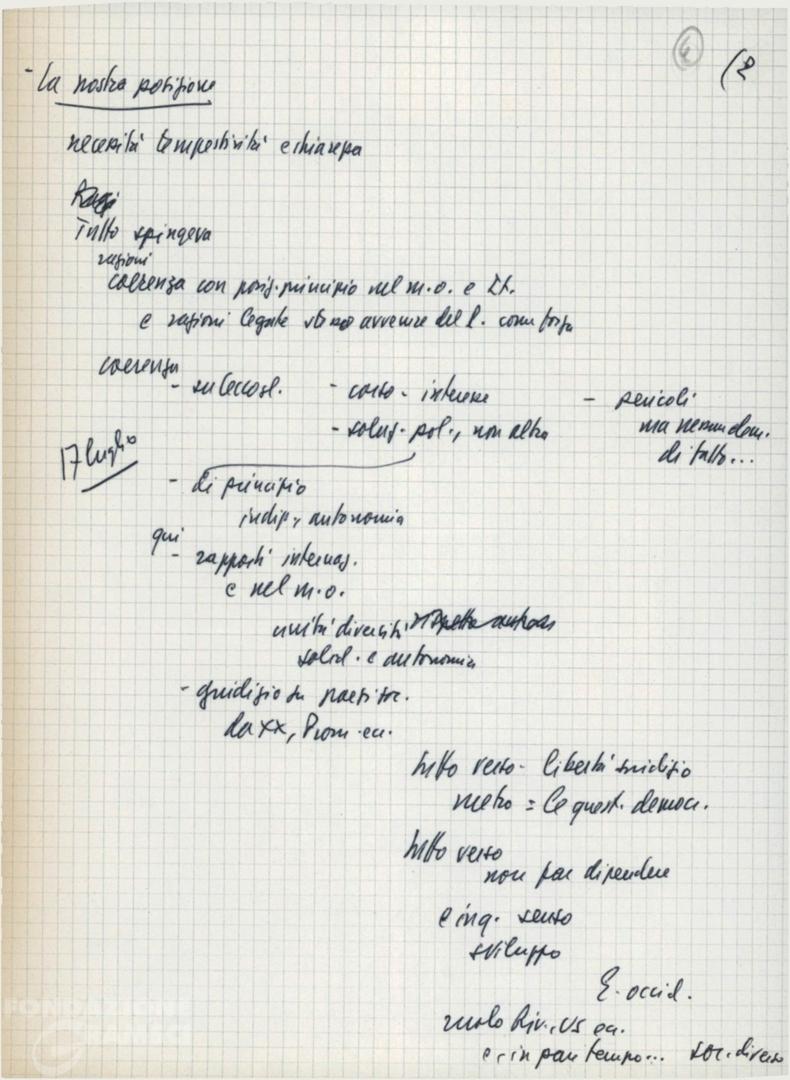 ④ (2
- La nostra posizione
necessità tempestività e chiarezza
Tutto spingeva
ragioni
coerenza con posiz. principio nel m.o. e It.
e ragioni legate stesso avvenire del P. come forza
coerenza
- su Cecosl. - corso - interesse - pericoli
- soluz. pol., non altra ma nessun elem.
di fatto...
17 luglio
- di principio
indip., autonomia
qui
- rapporti internaz.
e nel m.o.
unità diversità rispetto
solid. e autonomia
- giudizio su paesi soc.
da XX, Prom. ecc.
tutto verso - libertà giudizio
metro = le quest. democr.
tutto verso
non far dipendere
e in q. senso
sviluppo
E. occid.
ruolo Riv., US ecc.
e, in pari tempo... soc. diverso
FONDAZIONE